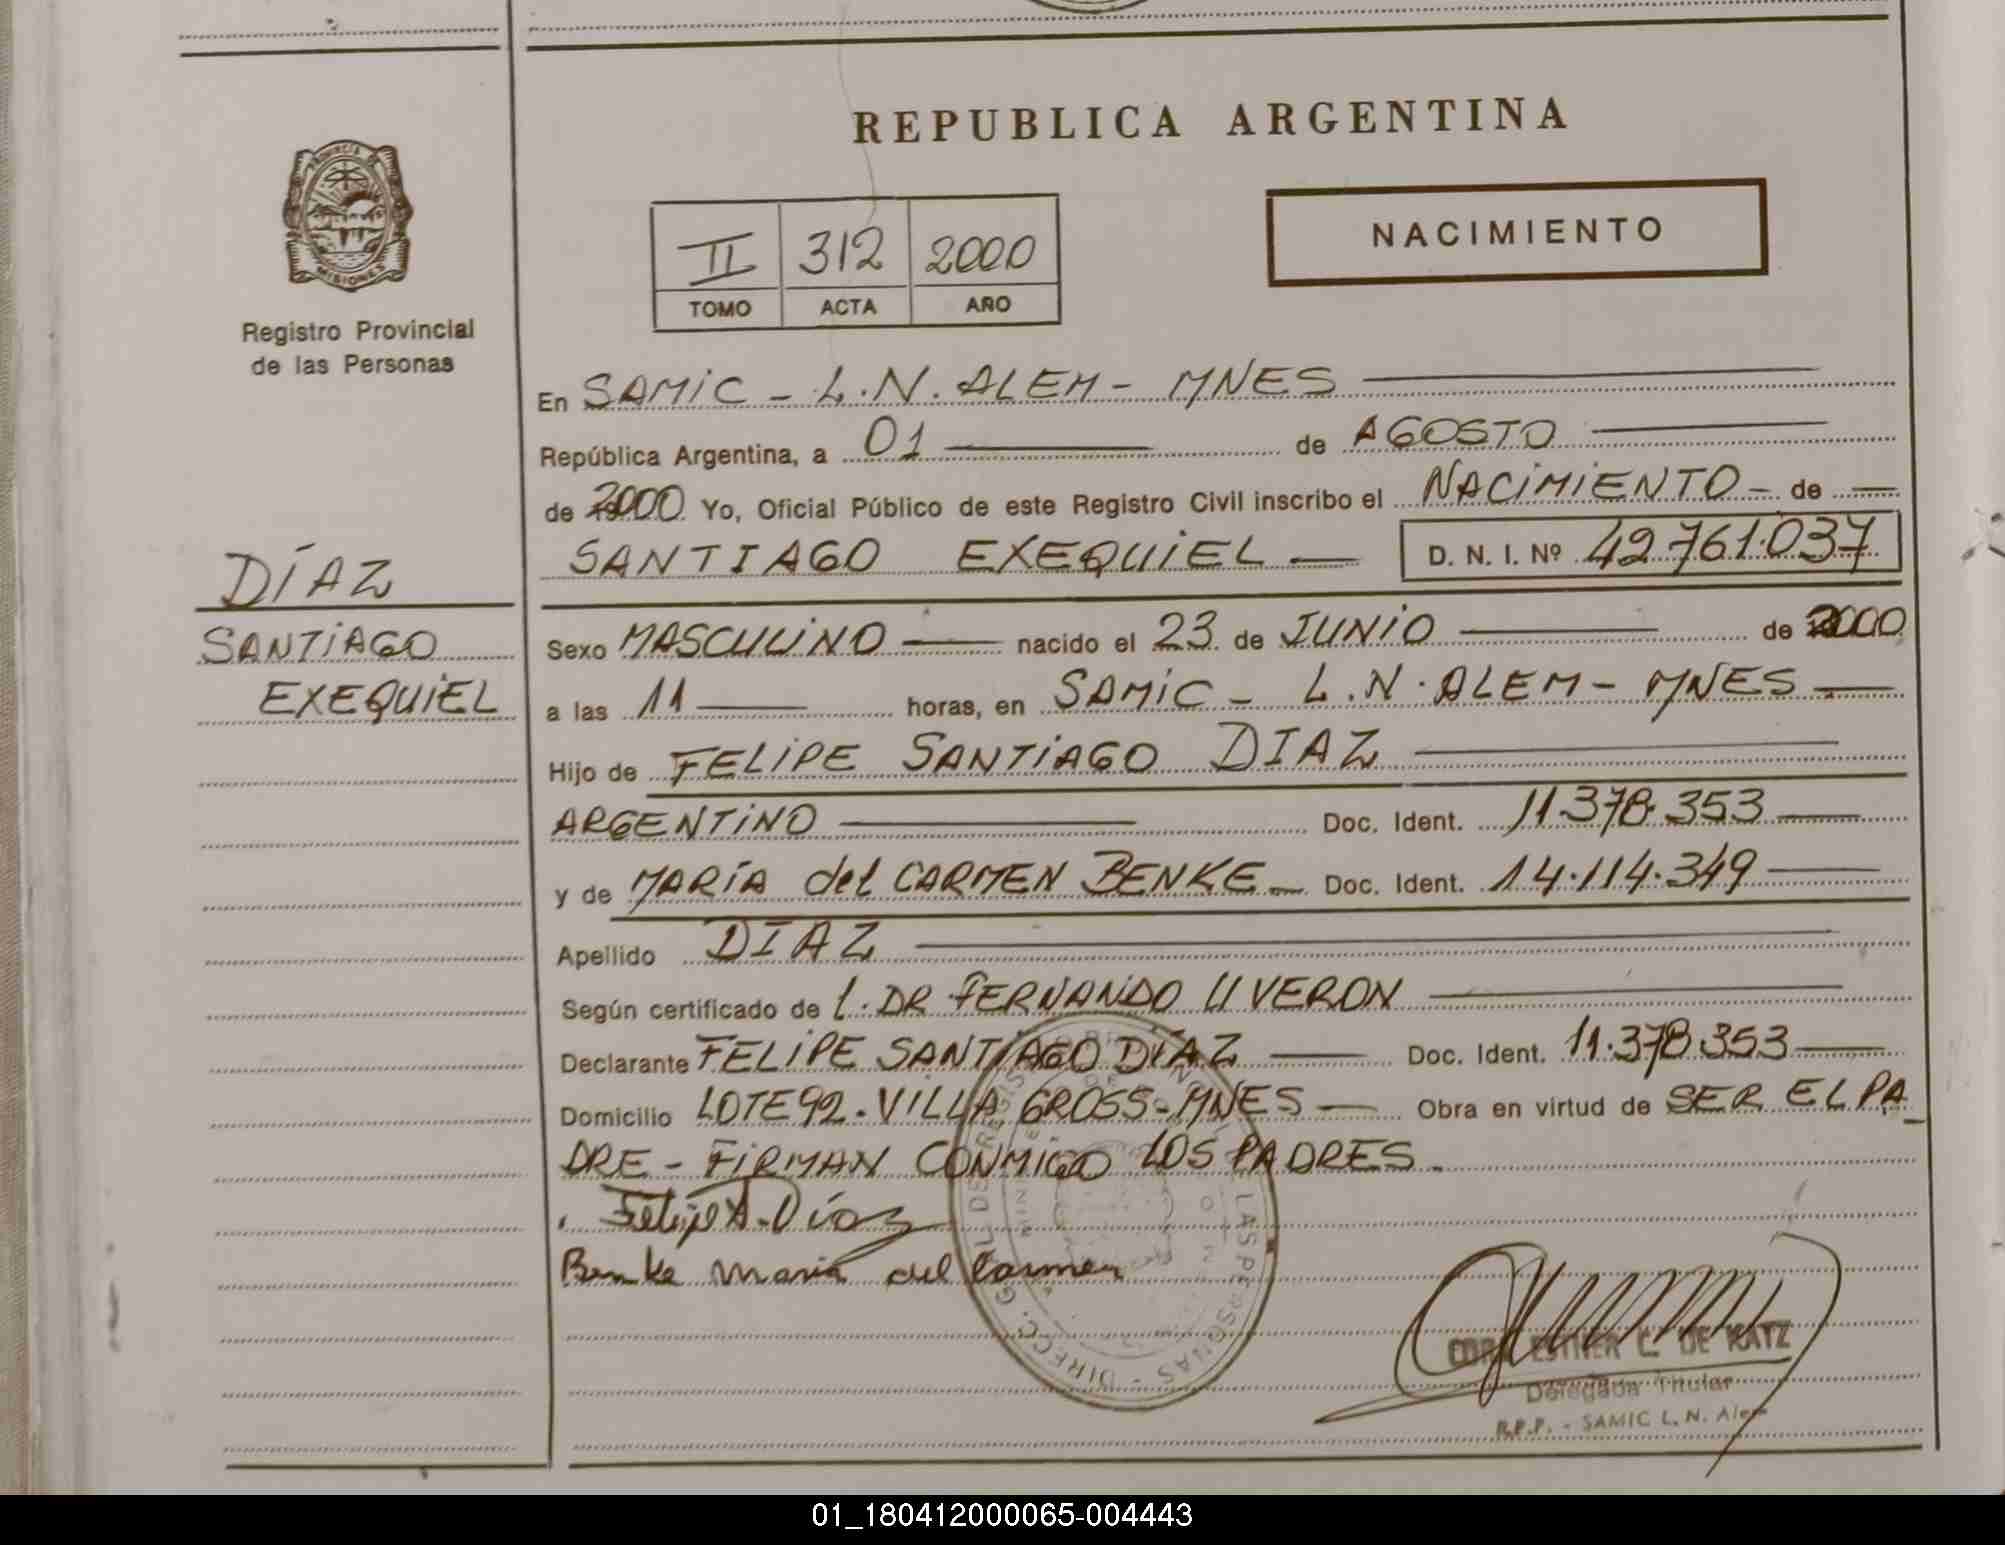 REPUBLICA ARGENTINA
PROVINCIA DE MISIONES
Registro Provincial
de las Personas
II 312 2000
TOMO ACTA AÑO
NACIMIENTO
En SAMIC - L.N. ALEM - MNES
República Argentina, a 01 de AGOSTO
de 2000 Yo, Oficial Público de este Registro Civil inscribo el NACIMIENTO - de
SANTIAGO EXEQUIEL D. N. I. Nº 42.761.037
DÍAZ
SANTIAGO
EXEQUIEL
Sexo MASCULINO nacido el 23 de JUNIO de 2000
a las 11 horas, en SAMIC - L.N. ALEM - MNES
Hijo de FELIPE SANTIAGO DIAZ
ARGENTINO Doc. Ident. 11.378.353
y de MARÍA del CARMEN BENKE Doc. Ident. 14.114.349
Apellido DIAZ
Según certificado de DR FERNANDO VERON
Declarante FELIPE SANTIAGO DÍAZ Doc. Ident. 11.378.353
Domicilio LOTE 92 - VILLA GROSS - MNES Obra en virtud de SER EL PA
DRE - FIRMAN CONMIGO LOS PADRES.
Felipe S. Díaz
Benke Maria del Carmen
ESTHER C. DE KATZ
Delegada Titular
R.P.P. - SAMIC L. N. Alem
01_180412000065-004443